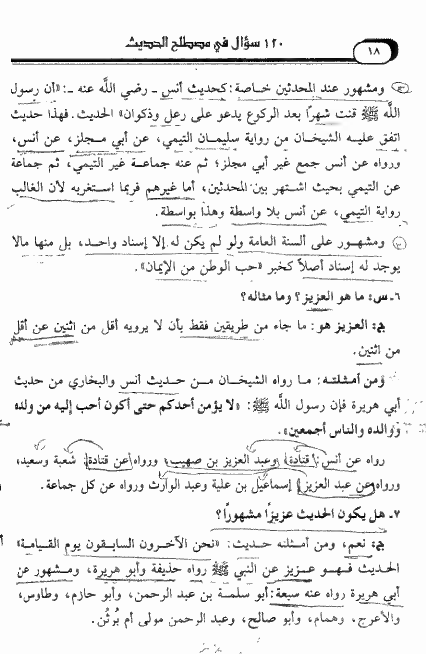 ١٢٠ سؤال في مصطلح الحديث
١٨
ومشهور عند المحدثين خاصة: كحديث أنس ـ رضي الله عنه ـ: «أن رسول
الله ﷺ قنت شهراً بعد الركوع يدعو على رعل وذكوان» الحديث. فهذا حديث
اتفق عليه الشيخان من رواية سليمان التيمي، عن أبي مجلز، عن أنس،
ورواه عن أنس جمع غير أبي مجلز؛ ثم عنه جماعة غير التيمي، ثم جماعة
عن التيمي بحيث اشتهر بين المحدثين، أما غيرهم فربما استغربه لأن الغالب
رواية التيمي، عن أنس بلا واسطة وهذا بواسطة.
ومشهور على ألسنة العامة ولو لم يكن له إلا إسناد واحد، بل منها مالا
يوجد له إسناد أصلاً كخبر «حب الوطن من الإيمان».
٦ـ س: ما هو العزيز؟ وما مثاله؟
ج: العزيز هو: ما جاء من طريقين فقط بأن لا يرويه أقل من اثنين عن أقل
من اثنين.
ومن أمثلته: ما رواه الشيخان من حديث أنس والبخاري من حديث
أبي هريرة فإن رسول الله ﷺ: «لا يؤمن أحدكم حتى أكون أحب إليه من ولده
ووالده والناس أجمعين»
رواه عن أنس: قتادة وعبد العزيز بن صهيب، ورواه عن قتادة: شعبة وسعيد،
ورواه عن عبد العزيز: إسماعيل بن علية وعبد الوارث ورواه عن كل جماعة.
٧ـ هل يكون الحديث عزيزاً مشهوراً؟
ج: نعم، ومن أمثلته حديث: «نحن الآخرون السابقون يوم القيامة»
الحديث فهو عزيز عن النبي ﷺ رواه حذيفة وأبو هريرة، ومشهور عن
أبي هريرة رواه عنه سبعة: أبو سلمة بن عبد الرحمن، وأبو حازم، وطاوس،
والأعرج، وهمام، وأبو صالح، وعبد الرحمن مولى أم بُرثُن.